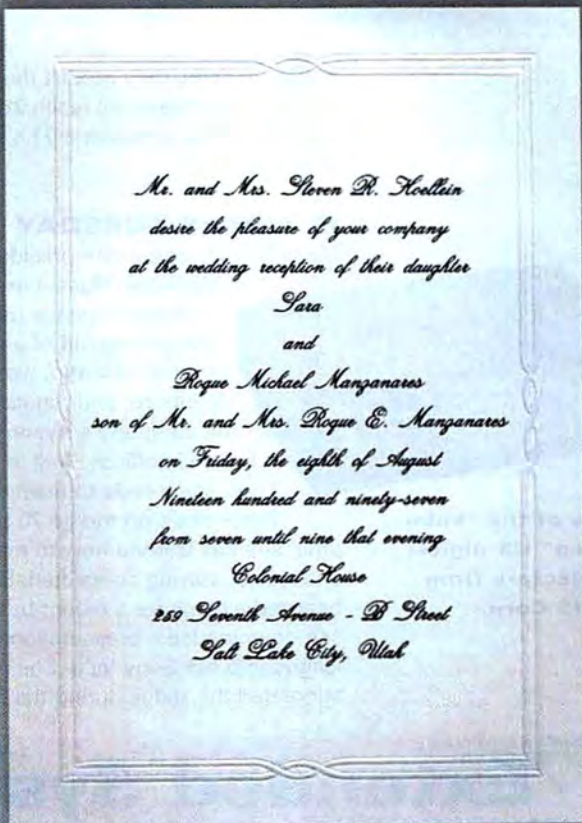 Mr. and Mrs. Steven R. Hoellein
desire the pleasure of your company
at the wedding reception of their daughter
Sara
and
Roque Michael Manzanares
son of Mr. and Mrs. Roque E. Manzanares
on Friday, the eighth of August
Nineteen hundred and ninety-seven
from seven until nine that evening
Colonial House
259 Seventh Avenue - B Street
Salt Lake City, Utah